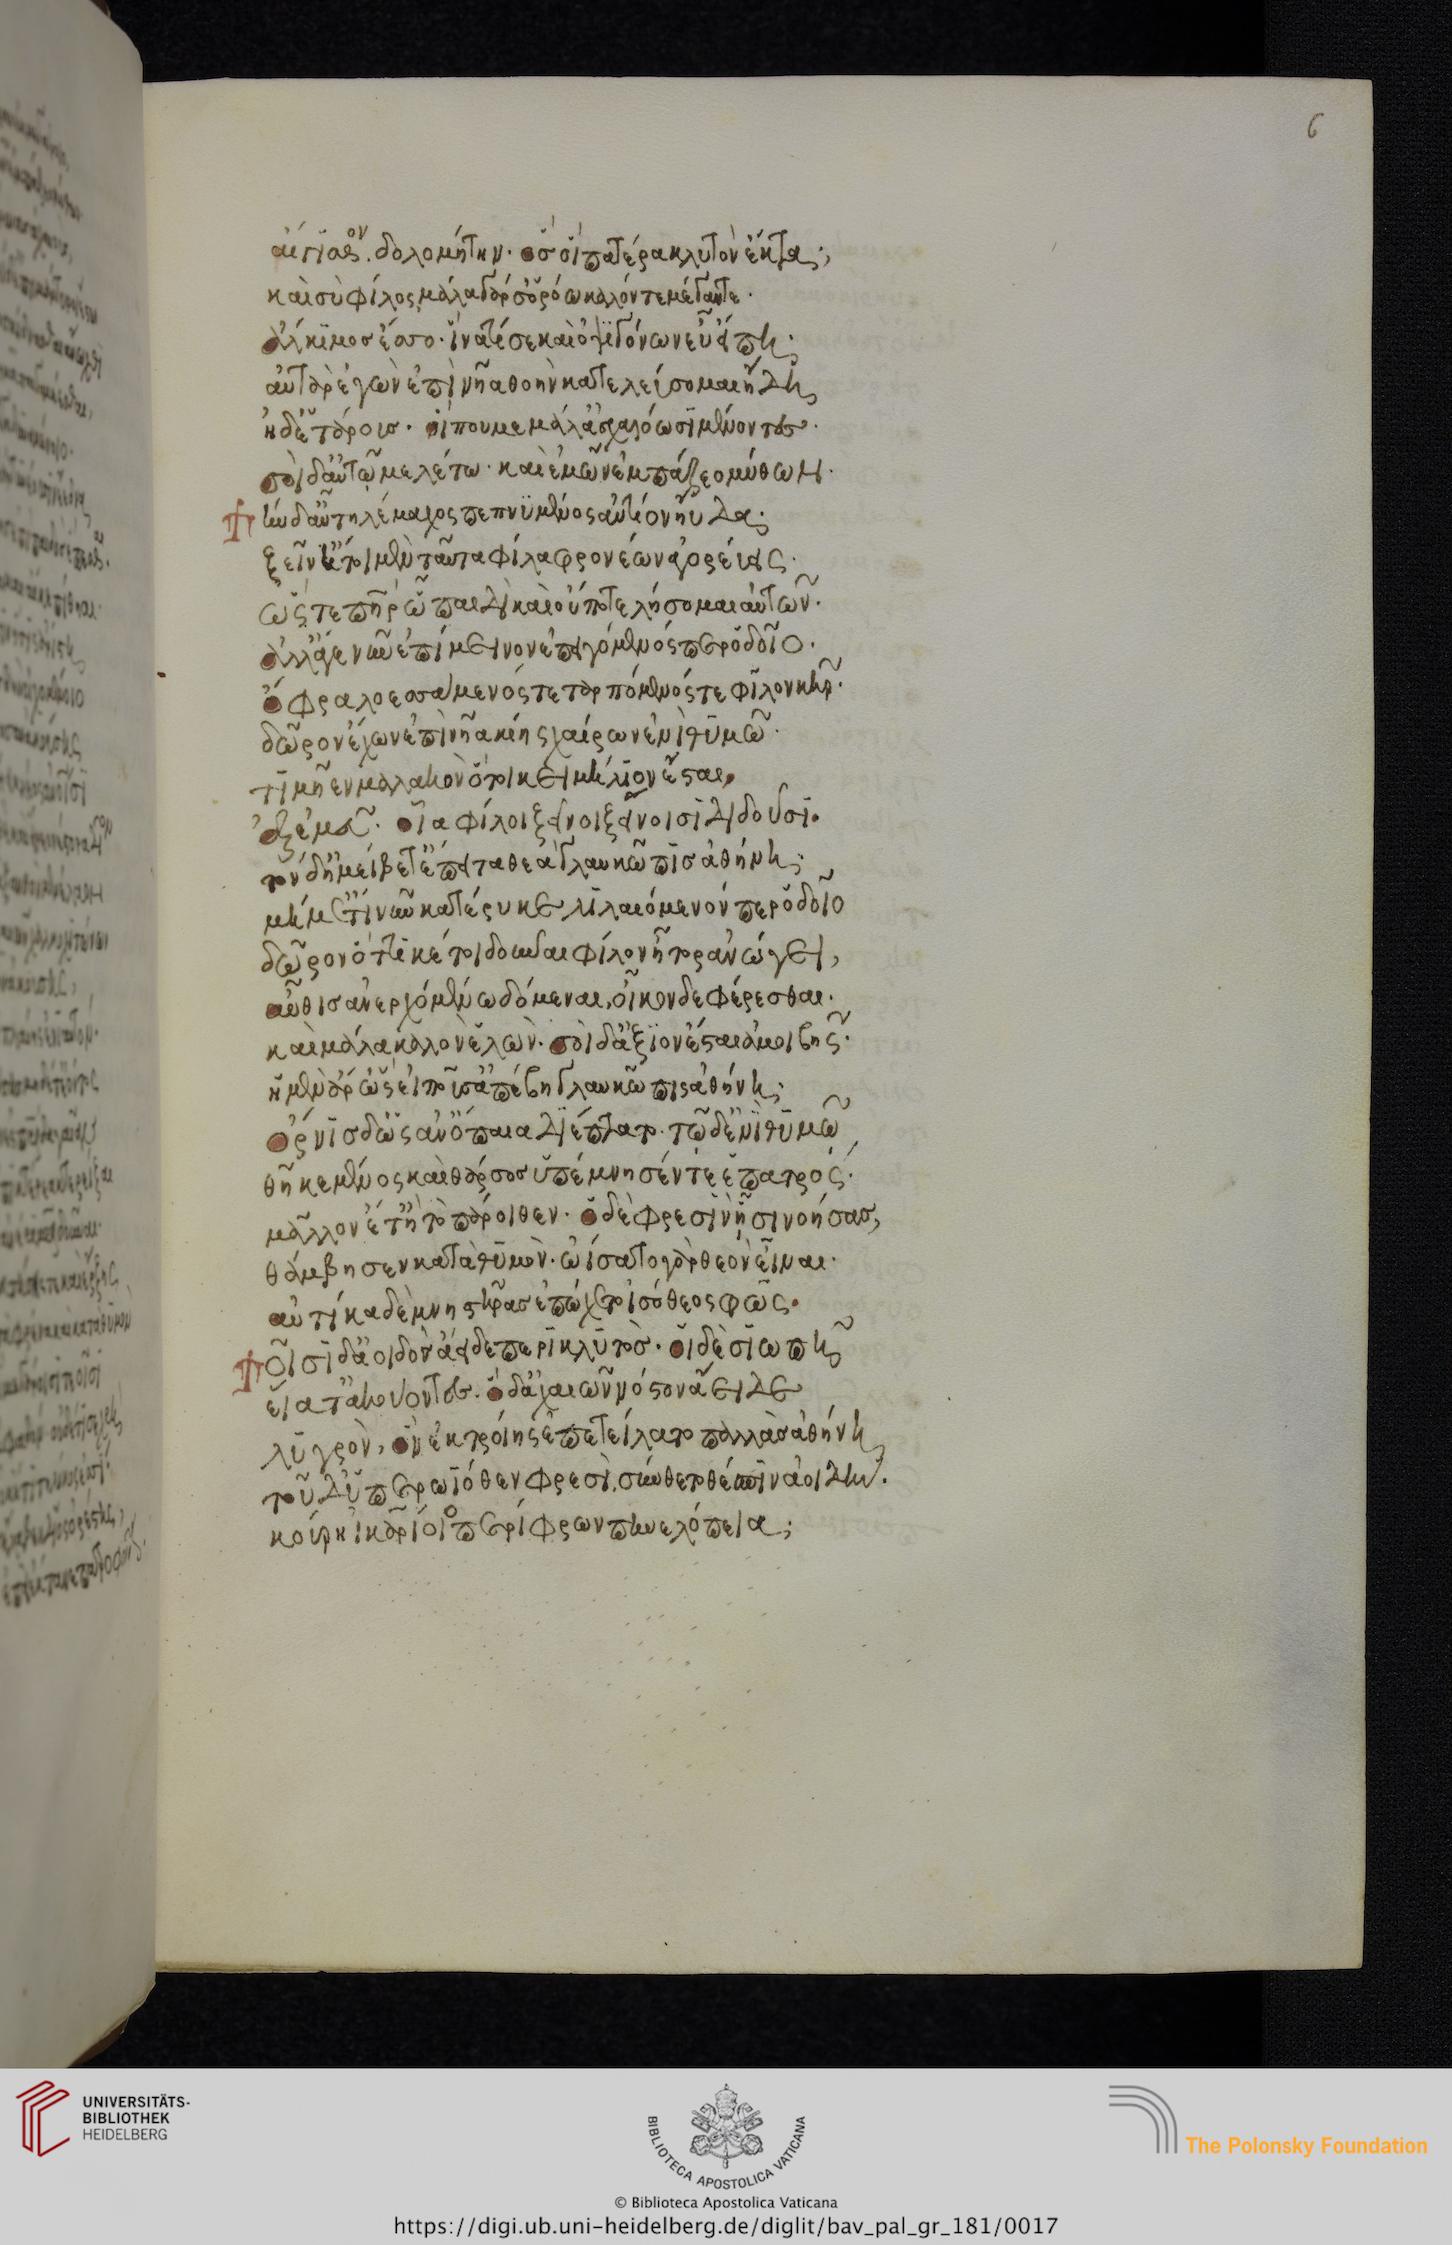 6
αἴγισθον δολομήτην· ὅς οἱ πατέρα κλυτὸν ἔκτα;
καὶ σὺ φίλος μάλα γάρ σ' ὁρόω καλόν τε μέγαν τε·
ἄλκιμος ἔσσο· ἵνα τίς σε καὶ ὀψιγόνων εὖ εἴπη·
αὐτὰρ ἐγὼν ἐπὶ νῆα θοὴν κατελεύσομαι ἤδη
ἠδ' ἑτάροις· οἵ που με μάλ' ἀσχαλόωσι μένοντες·
σοὶ δ' αὐτῷ μελέτω· καὶ ἐμῶν ἐμπάζεο μύθων·
τὴν δ' αὖ τηλέμαχος πεπνυμένος ἀντίον ηὔδα·
ξεῖν' ἤτοι μὲν ταῦτα φίλα φρονέων ἀγορεύεις·
ὥς τε πατὴρ ᾧ παιδὶ καὶ οὔποτε λήσομαι αὐτῶν·
ἀλλ' ἄγε νῦν ἐπίμεινον ἐπειγόμενός περ ὁδοῖο·
ὄφρα λοεσσάμενός τε τεταρπόμενός τε φίλον κῆρ·
δῶρον ἔχων ἐπὶ νῆα κίῃς χαίρων ἐνὶ θυμῷ·
τιμῆεν μάλα καλὸν ὅ τοι κειμήλιον ἔσται
ἐξ ἐμεῦ· οἷα φίλοι ξεῖνοι ξείνοισι διδοῦσι·
τὸν δ' ἠμείβετ' ἔπειτα θεὰ γλαυκῶπις ἀθήνη·
μή μ' ἔτι νῦν κατέρυκε λιλαιόμενόν περ ὁδοῖο
δῶρον ὅττί κέ τοι δοῦναι φίλον ἦτορ ἀνώγει,
αὖθις ἀνερχομένῳ δόμεναι, οἶκονδε φέρεσθαι·
καὶ μάλα καλὸν ἑλών· σοὶ δ' ἄξιον ἔσται ἀμοιβῆς·
ἡ μὲν ἄρ' ὣς εἰποῦσ' ἀπέβη γλαυκῶπις ἀθήνη;
ὄρνις δ' ὣς ἀνόπαια διέπτατο· τῷ δ' ἐνὶ θυμῷ
θῆκε μένος καὶ θάρσος ὑπέμνησέν τέ ἑ πατρός·
μᾶλλον ἔτ' ἢ τὸ πάροιθεν· ὁ δὲ φρεσὶν ᾗσι νοήσας,
θάμβησεν κατὰ θυμόν· ὠίσατο γὰρ θεὸν εἶναι·
αὐτίκα δὲ μνηστῆρας ἐπῴχετο ἰσόθεος φώς·
τοῖσι δ' ἀοιδὸς ἄειδε περικλυτός· οἱ δὲ σιωπῇ
εἵατ' ἀκούοντες· ὁ δ' ἀχαιῶν νόστον ἄειδε
λυγρόν, ὃν ἐκ τροίης ἐπετείλατο παλλὰς ἀθήνη
τοῦ δ' ὑπερωϊόθεν φρεσὶ σύνθετο θέσπιν ἀοιδήν·
κούρη ἰκαρίοιο περίφρων πηνελόπεια;
UNIVERSITÄTS-
BIBLIOTHEK
HEIDELBERG
BIBLIOTECA APOSTOLICA VATICANA
© Biblioteca Apostolica Vaticana
The Polonsky Foundation
https://digi.ub.uni-heidelberg.de/diglit/bav_pal_gr_181/0017